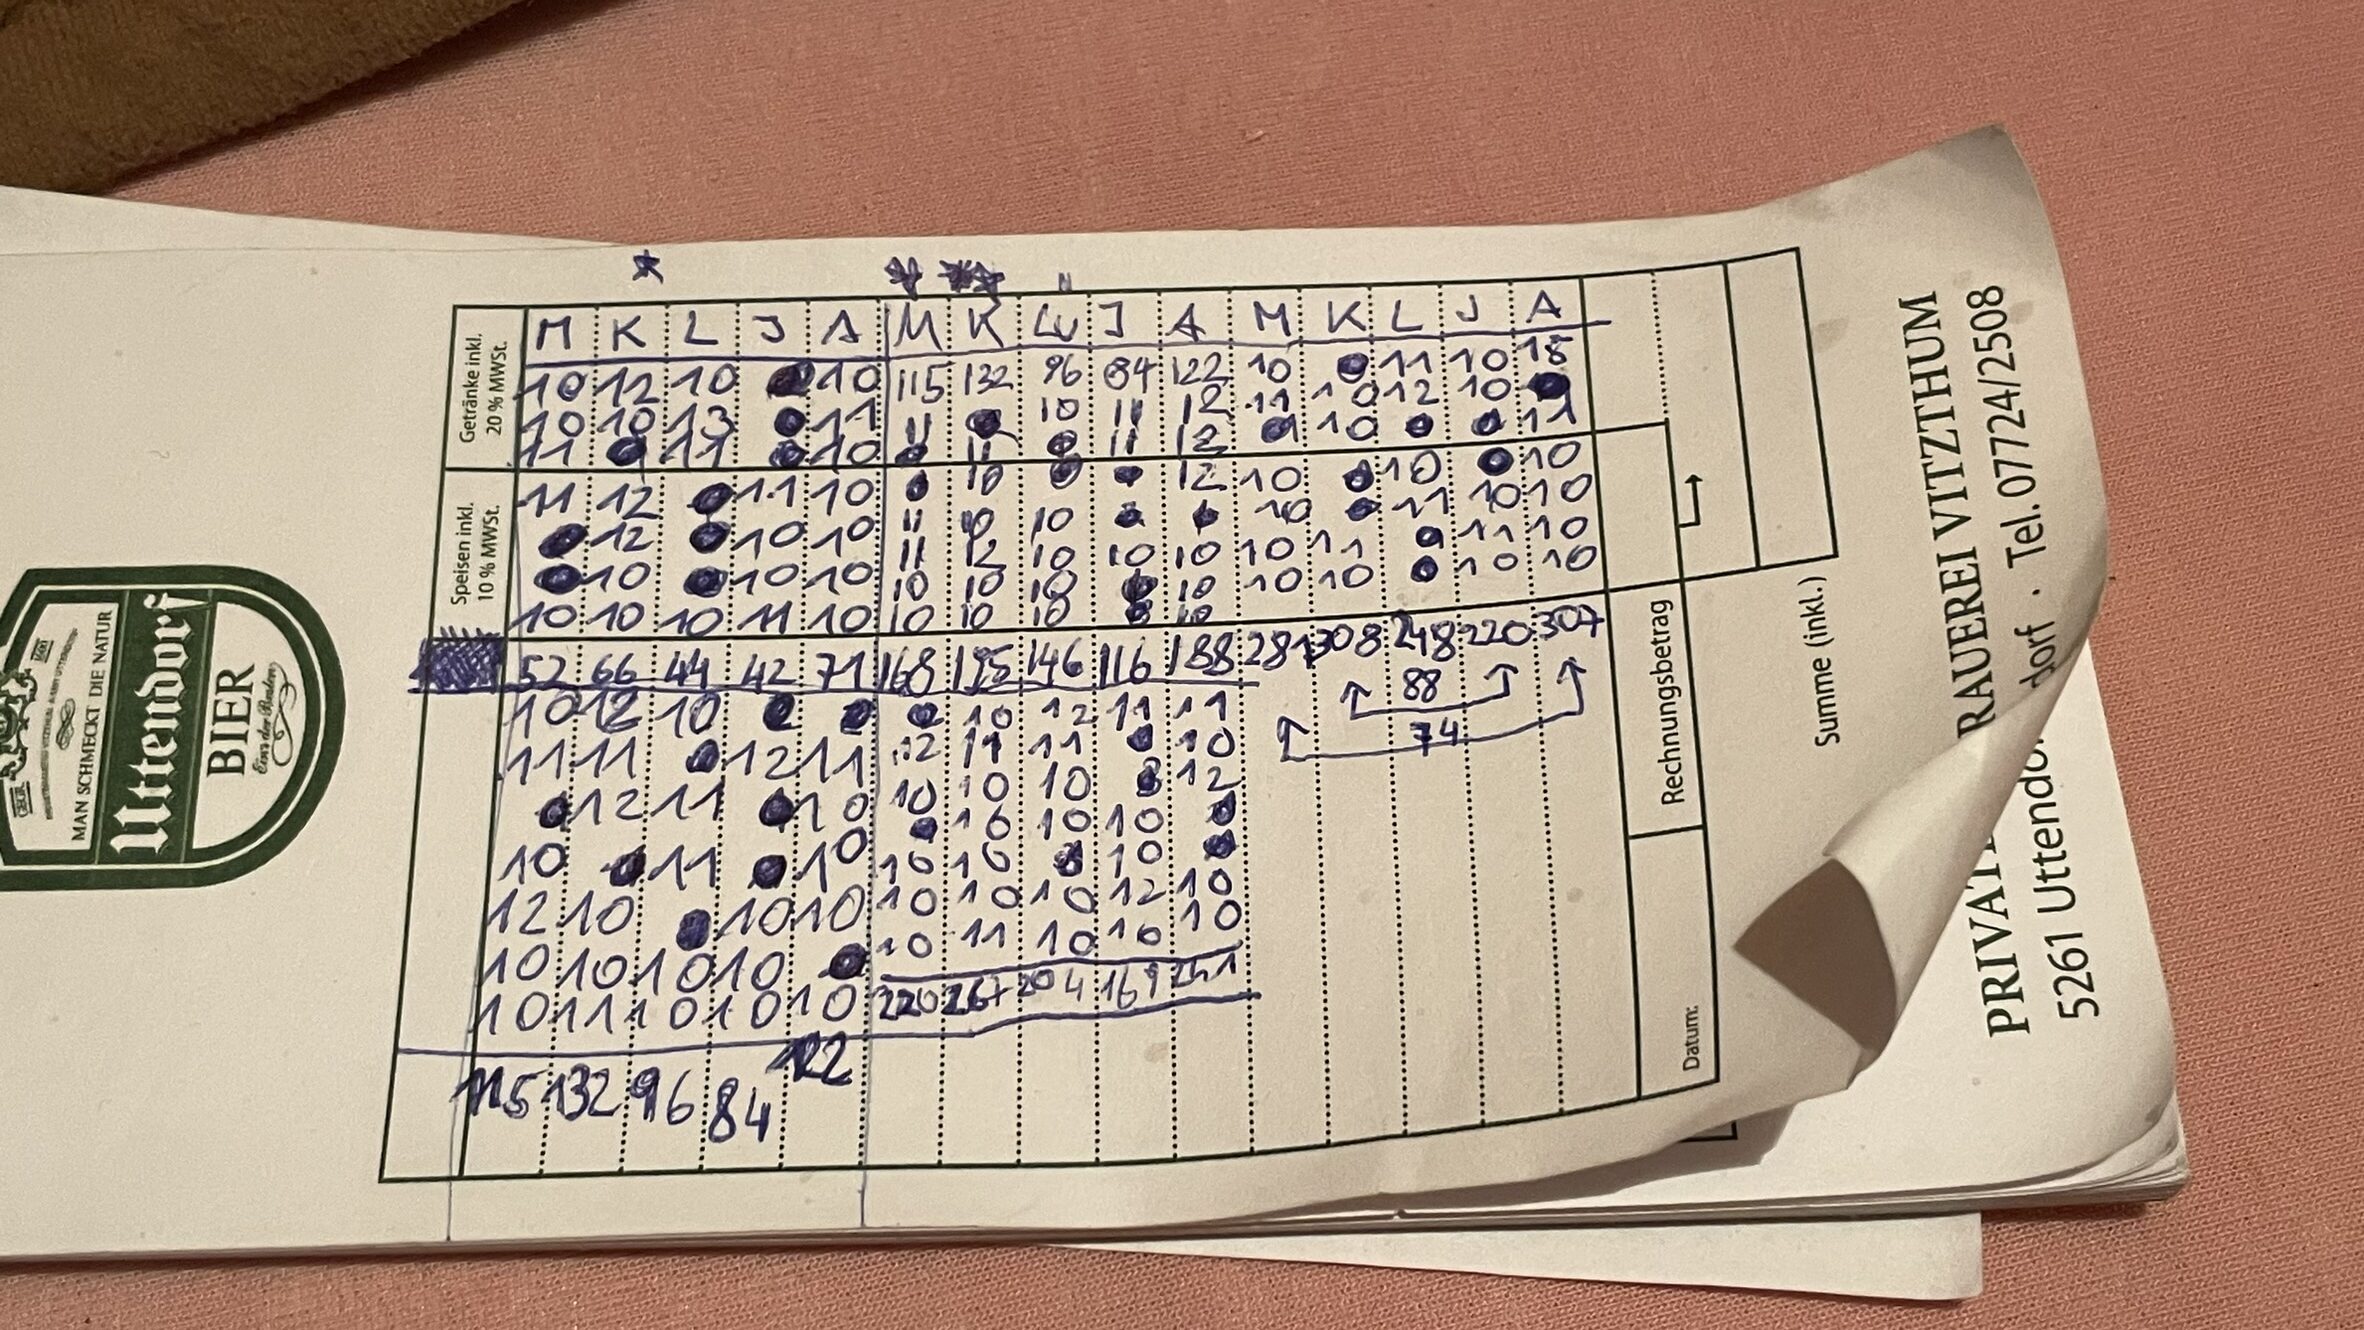 MAN SCHMECKT DIE NATUR
Uttendorf
BIER
Eins der Besten
Getränke inkl.
20 % MWSt.
Speisen inkl.
10 % MWSt.
M K L J A M K Lu J A M K L J A
10 12 10 10 115 132 96 84 122 10 11 10 18
10 10 13 11 11 10 11 12 11 10 12 10
11 11 10 11 11 12 10 11
11 12 11 10 10 12 10 10 10
12 10 10 11 10 10 10 11 10 10
12 10 10 11 12 10 10 10 10 11 11 10
10 10 10 10 10 10 10 10 10 10 10
10 10 10 11 10 10 10 10 10
52 66 44 42 71 168 195 146 116 188 281 308 248 220 307
88
74
10 12 10 10 12 11 11
11 11 12 11 12 11 11 10
12 11 10 10 10 10 12
10 11 10 10 10 10
12 10 10 10 10 10 10
10 10 10 10 10 10 10 12 10
10 11 10 10 10 10 11 10 10 10
220 267 204 169 241
115 132 96 84 122
Rechnungsbetrag
Datum:
Summe (inkl.)
PRIVAT RAUEREI VITZTHUM
5261 Uttendorf · Tel. 07724/2508